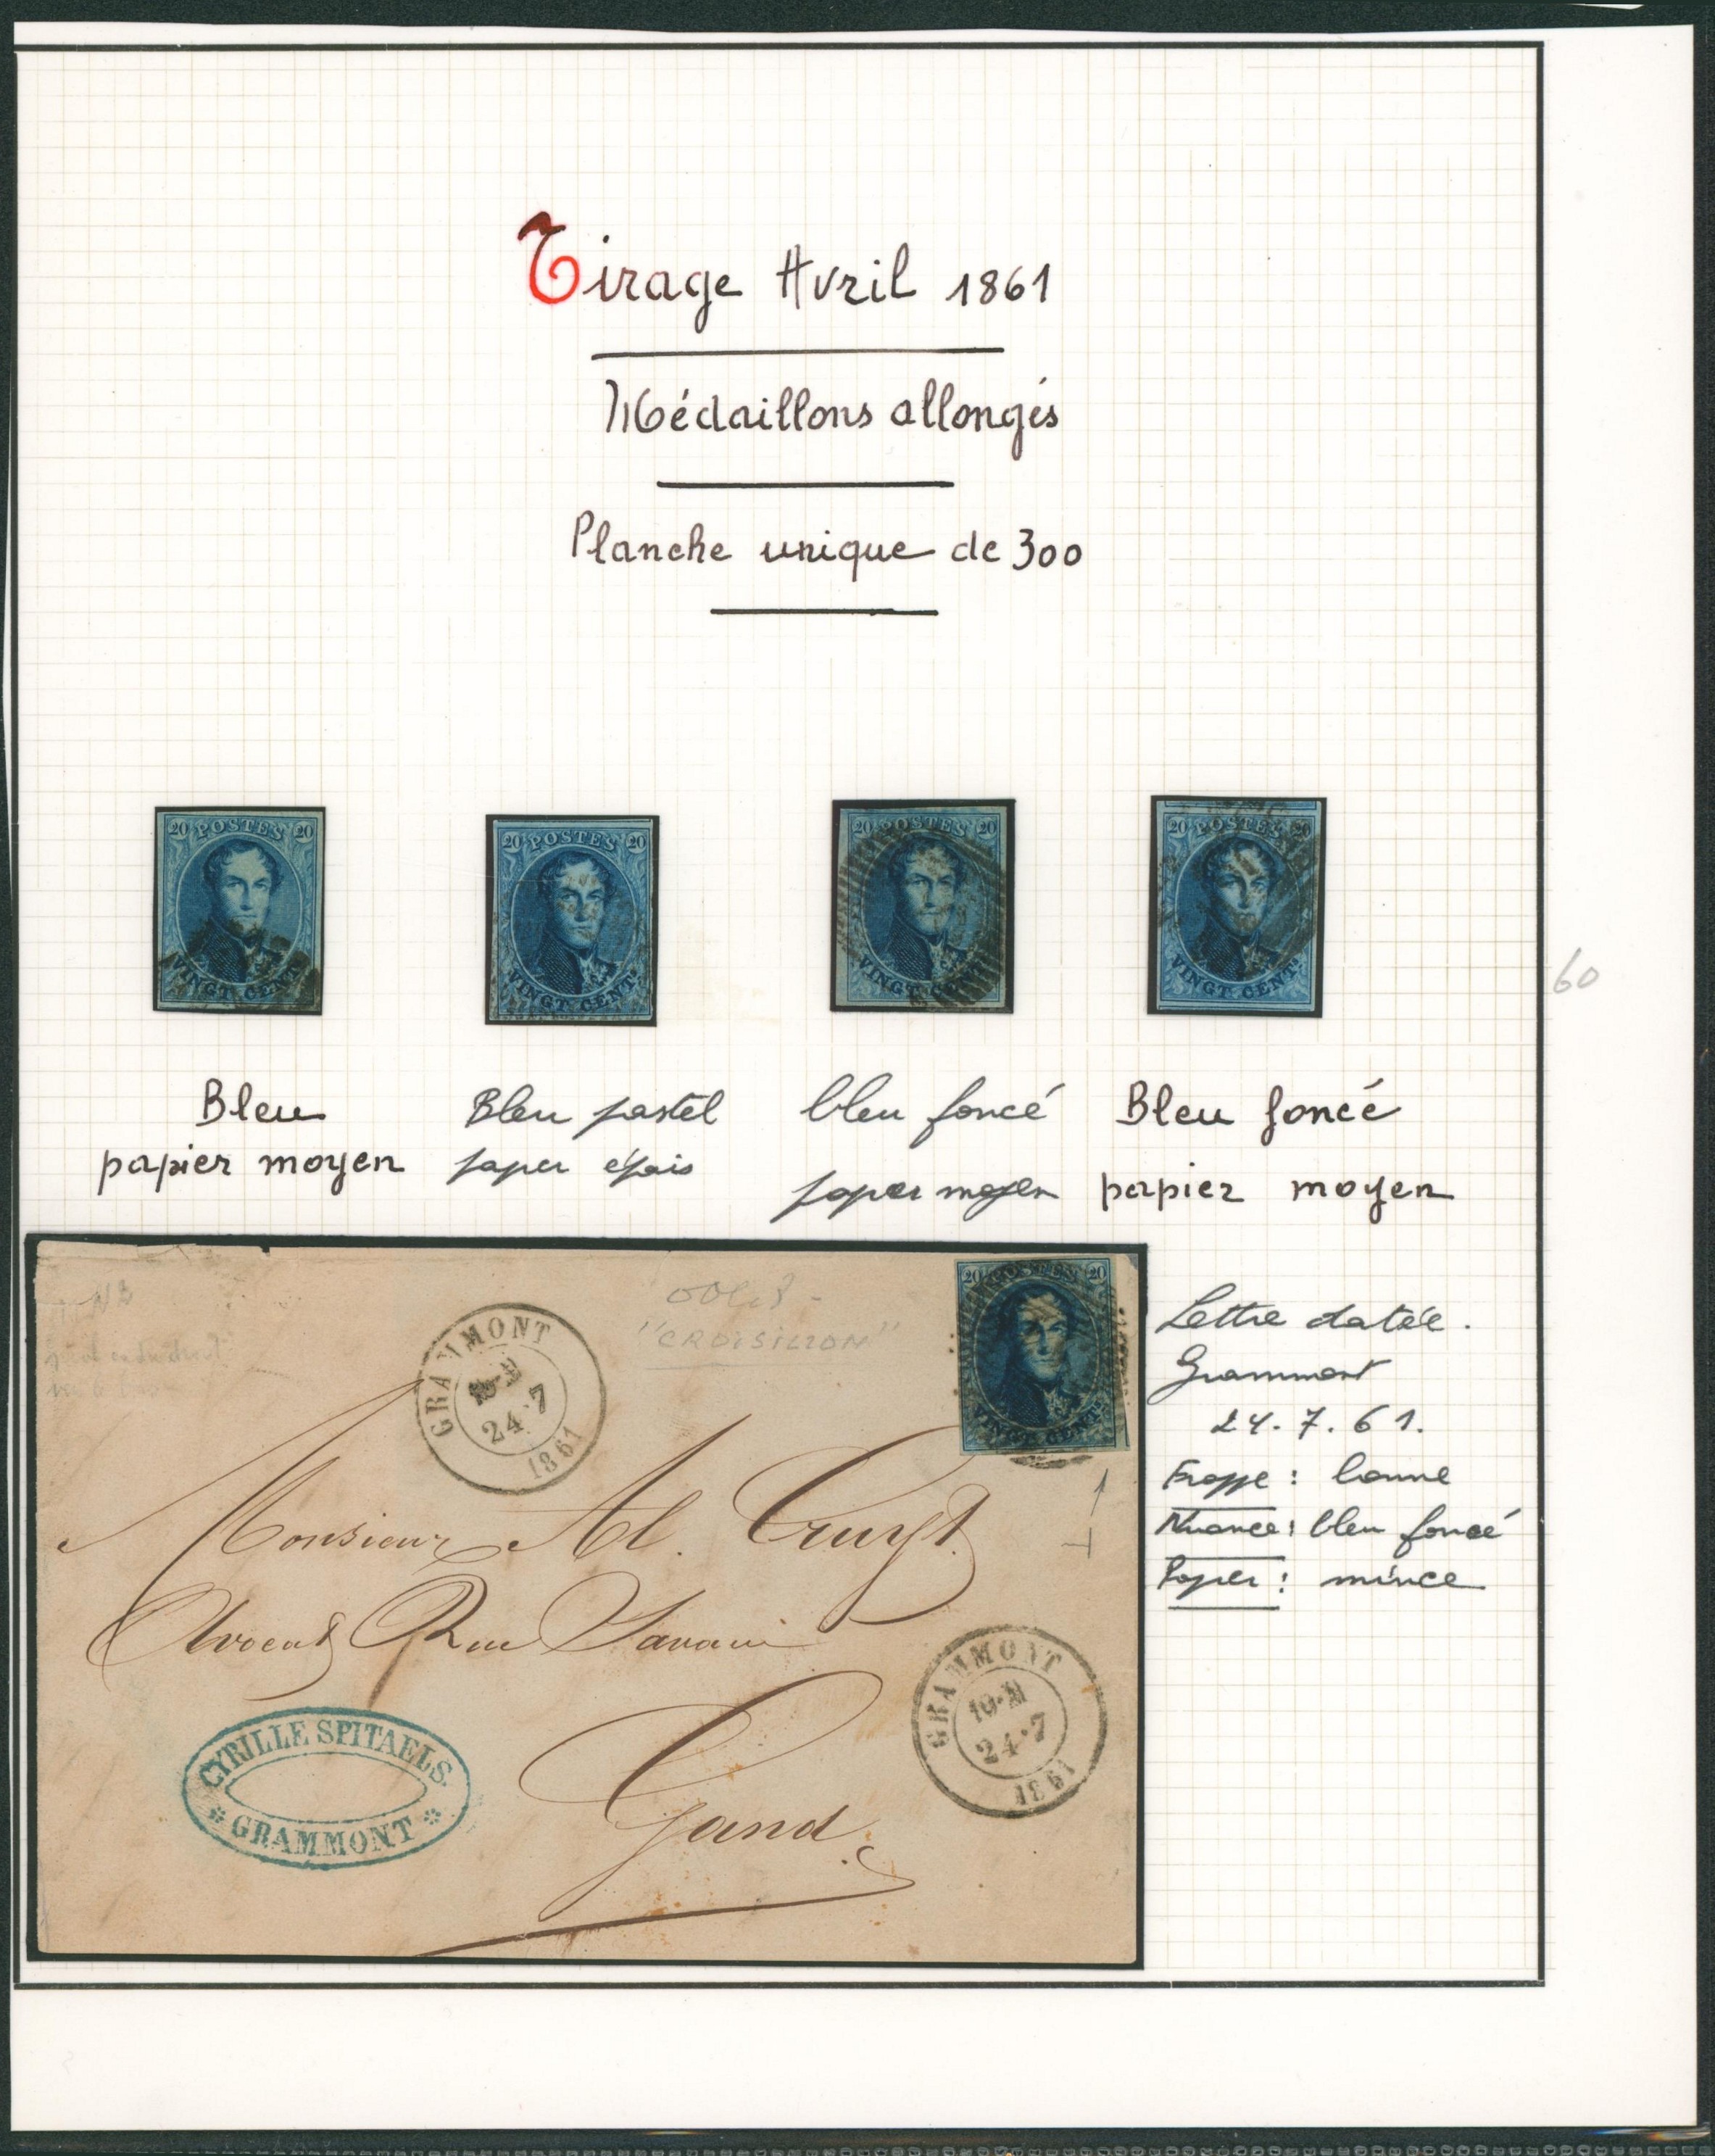 Tirage Avril 1861
Médaillons allongés
Planche unique de 300
20 POSTES 20
VINGT CENTS
20 POSTES 20
VINGT CENTS
20 POSTES 20
VINGT CENTS
20 POSTES 20
VINGT CENTS
60
Bleu
papier moyen
Bleu pastel
papier épais
bleu foncé
papier moyen
Bleu foncé
papier moyen
NB
"CROISILLON"
GRAMMONT
24·7
1861
20 POSTES 20
VINGT CENTS
Monsieur Al. Cruyt
Avocat Rue Savaen
Gand
CYRILLE SPITAELS
GRAMMONT
GRAMMONT
10-M
24·7
1861
Lettre datée.
Grammont
24.7.61.
Frappe: bonne
Nuance: bleu foncé
Papier: mince